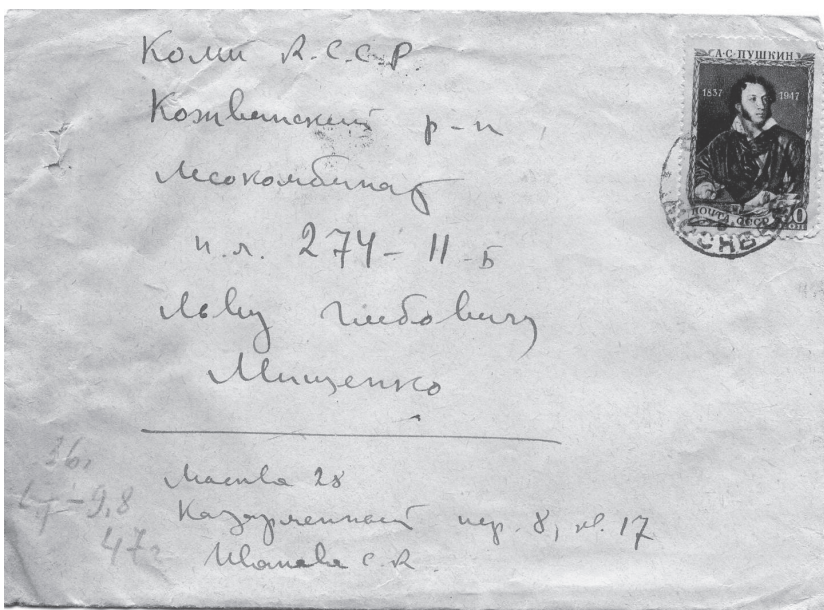 Коми А.С.С.Р
Кожвенский р-н
Лесокомбинат
п.л. 274-11-Б
Льву Глебовичу
Мищенко
Москва 28
Казарменный пер. 8, кв. 17
Иванова С.А.
А·С·ПУШКИН
1837 1947
ПОЧТА СССР
36г
-9,8
47г